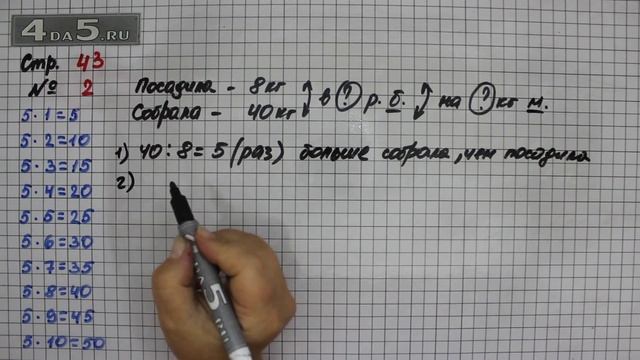 4DA5.RU
Стр. 43
№ 2
5·1=5
5·2=10
5·3=15
5·4=20
5·5=25
5·6=30
5·7=35
5·8=40
5·9=45
5·10=50
Посадила - 8 кг
Собрала - 40 кг
в ? р. б.
на ? кг м.
1) 40:8=5 (раз) больше собрала, чем посадила
2)